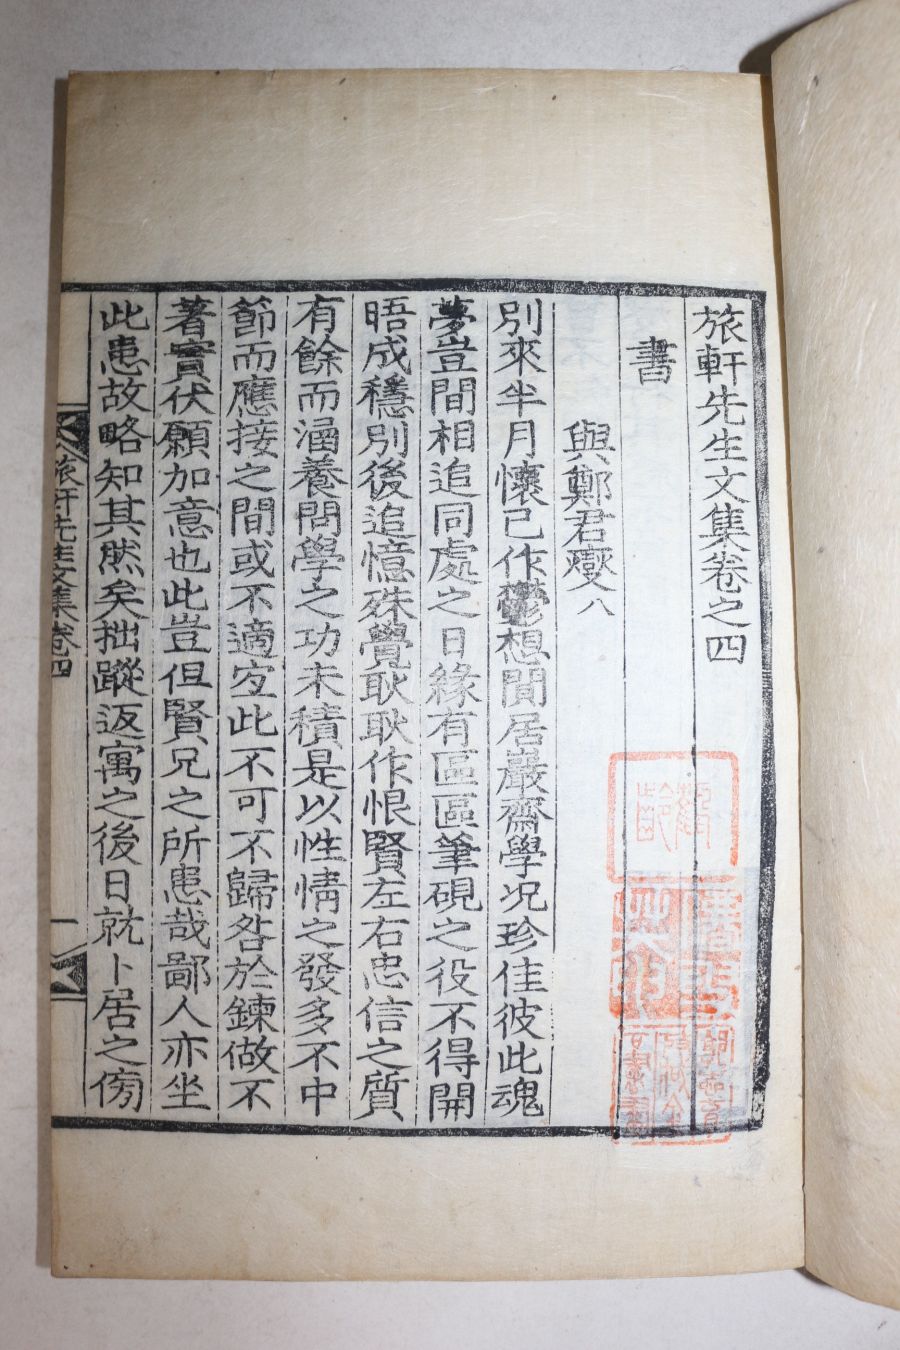 旅軒先生文集卷之四
書
與鄭君燮八
別來半月懷已作鬱想閒居巖齋學况珍佳彼此魂
夢豈間相追同處之日緣有區區筆硯之役不得開
晤成穩別後追憶殊覺耿耿作恨賢左右忠信之質
有餘而涵養問學之功未積是以性情之發多不中
節而應接之間或不適宜此不可不歸咎於鍊做不
著實伏願加意也此豈但賢兄之所患哉鄙人亦坐
此患故略知其然矣拙蹤返寓之後日就卜居之傍
旅軒先生文集卷四
一